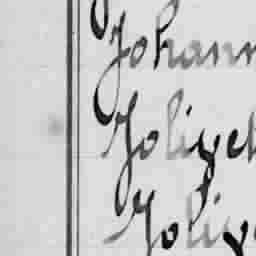 Johann
Jolivet
Joliv